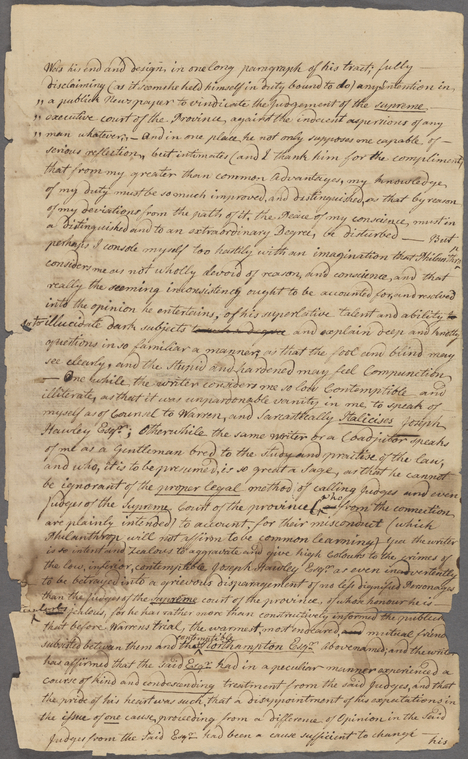 Was his end and design, in one long paragraph of his tract; fully
disclaiming (as it seems he held himself in duty bound to do) any Intention in
" a publick News paper to vindicate the Judgement of the supreme
" executive court of the Province, against the indecent aspersions of any
" man whatever; — And in one place, he not only supposes me capable of
serious reflection, but intimates (and I thank him for the compliment)
that from my greater than common Advantages, my knowledge
of my duty must be so much improved, and distinguished, as that by reason
of my deviations from the path of it, the Peace of my conscience, must in
a Distinguished and to an extraordinary Degree, be disturbed — But
perhaps I console myself too hastily with an imagination that Philanthrop
considers me as not wholly devoid of reason, and conscience, and that
really the seeming inconsistency ought to be accounted for, and resolved
into the opinion he entertains, of his superlative talent and ability
to illucidate dark subjects and explain deep and knotty
questions in so familiar a manner, as that the fool and blind may
see clearly, and the Stupid and hardened may feel Compunction
— One while the writer considers me so low Contemptible and
illiterate, as that it was unpardonable vanity in me, to speak of
myself as of Counsel to Warren, and Sarcastically Italicises Joseph
Hawley Esqr; Otherwhile the same writer or a Coadjutor speaks
of me as a Gentleman bred to the study and practise of the law,
and who, it is to be presumed, is so great a Sage, as that he cannot
be ignorant of the proper legal method of calling Judges and even
Judges of the Supreme Court of the province (who from the connection
are plainly intended) to account, for their misconduct (which
Philanthrop will not affirm to be common learning) Yea the writer
is so intent and zealous to aggravate and give high Colours to the crimes of
the low, inferior, contemptible Joseph Hawley Esqr as even inadvertently
to be betrayed into a grievous disparagement of no less dignified Personages
than the Judges of the Supreme court of the province, of whose honour he is
jealous, for he has rather more than constructively informed the publick
that before Warrens trial, the warmest, most endeared mutual friend
subsisted between them and that contemptible Northampton Esqr abovenamed, and the writer
has affirmed that the Said Esqr had in a peculiar manner experienced a
Course of kind and condescending treatment from the said Judges, and that
the pride of his heart was such, that a disappointment of his expectations in
the issue of one cause, proceeding from a difference of Opinion in the Said
Judges from the Said Esqr had been a cause sufficient to change
his